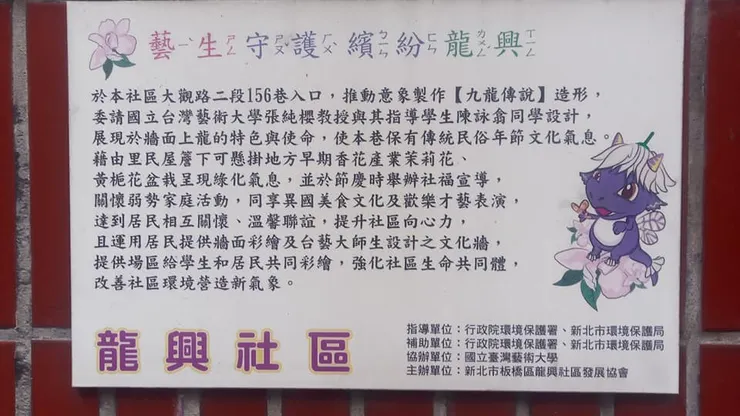 藝生守護繽紛龍興
於本社區大觀路二段156巷入口，推動意象製作【九龍傳說】造形，
委請國立台灣藝術大學張純櫻教授與其指導學生陳詠翕同學設計，
展現於牆面上龍的特色與使命，使本巷保有傳統民俗年節文化氣息。
藉由里民屋簷下可懸掛地方早期香花產業茉莉花、
黃梔花盆栽呈現綠化氣息，並於節慶時舉辦社福宣導，
關懷弱勢家庭活動，同享異國美食文化及歡樂才藝表演，
達到居民相互關懷、溫馨聯誼，提升社區向心力，
且運用居民提供牆面彩繪及台藝大師生設計之文化牆，
提供場區給學生和居民共同彩繪，強化社區生命共同體，
改善社區環境營造新氣象。
龍興社區
指導單位：行政院環境保護署、新北市環境保護局
補助單位：行政院環境保護署、新北市環境保護局
協辦單位：國立臺灣藝術大學
主辦單位：新北市板橋區龍興社區發展協會